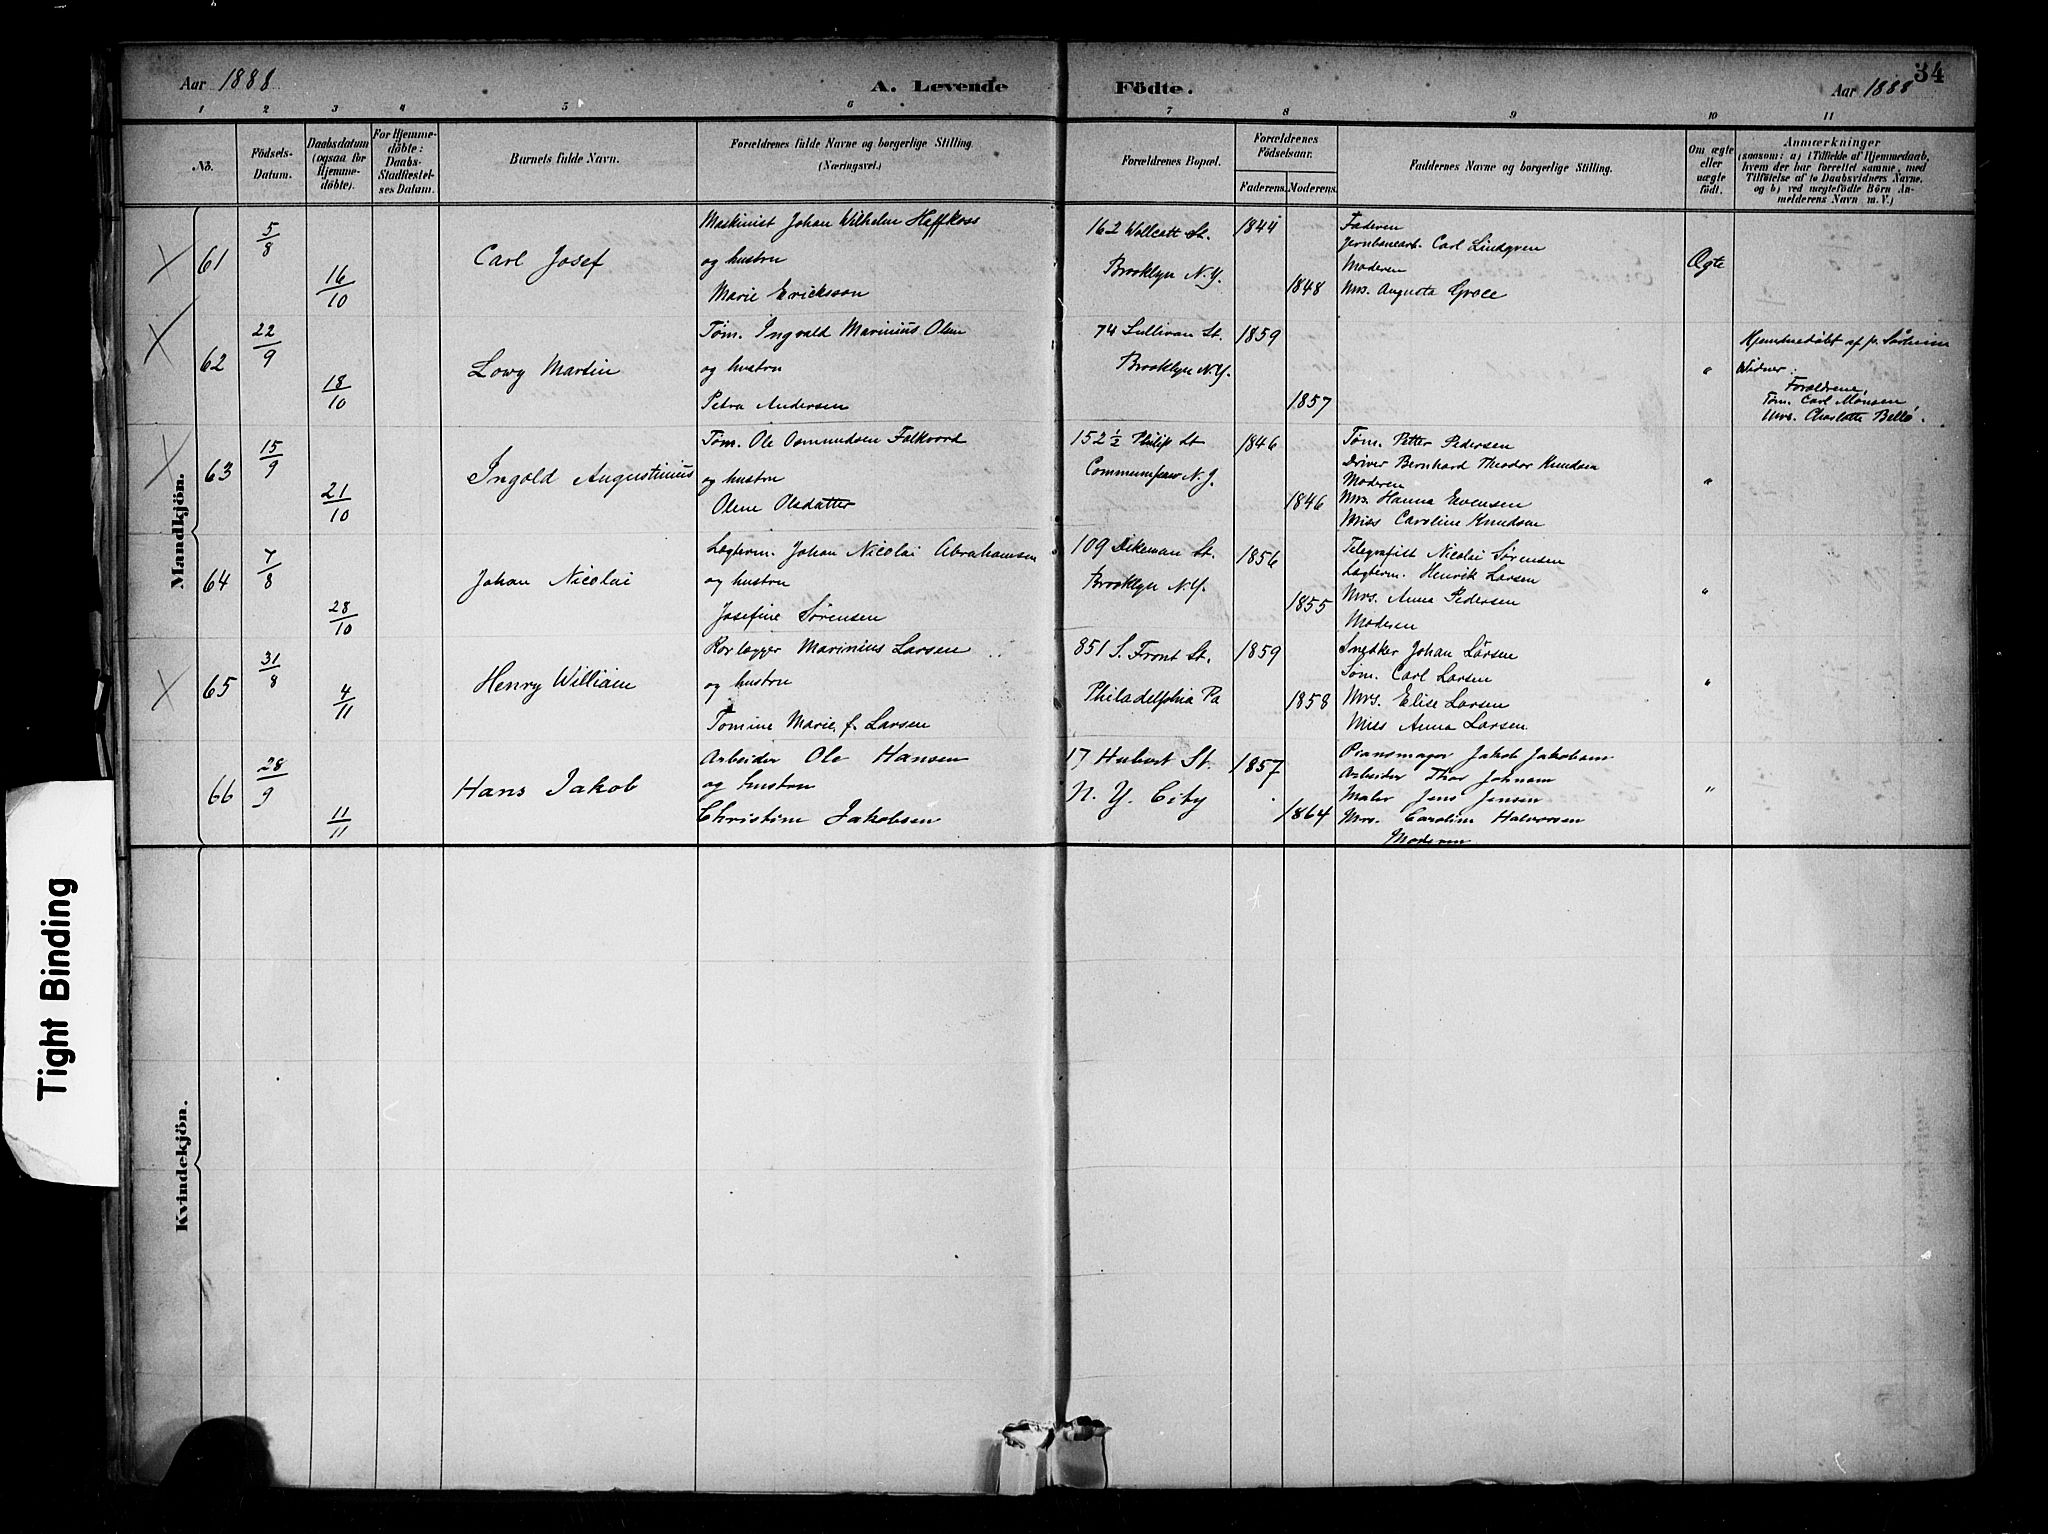 Aar 1888
A. Levende
Födte.
Aar 1888
34
1 2 3 4 5 6 7 8 9 10 11
No.
Födsels-
Datum.
Daabsdatum
(ogsaa for
Hjemme-
döbte).
For Hjemme-
döbte:
Daabs-
Stadfæstel-
ses Datum.
Barnets fulde Navn.
Forældrenes fulde Navne og borgerlige Stilling.
(Næringsvei.)
Forældrenes Bopæl.
Forældrenes
Födselsaar.
Faderens. Moderens.
Faddernes Navne og borgerlige Stilling.
Om ægte
eller
uægte
födt.
Anmærkninger
(saasom: a) i Tilfælde af Hjemmedaab,
hvem der har forrettet samme, med
Tilföielse af to Daabsvidners Navne,
og b) ved uægtefödte Börn An-
melderens Navn m. V.)
Mandkjön.
61
5/8
16/10
Carl Josef
Maskinist Johan Wilhelm Haffkoss
og hustru
Marie Ericksson
162 Wollcott St.
Brooklyn N.Y.
1844
1848
Faderen
Jernbanearb. Carl Lindgren
Moderen
Mrs. Augusta Groce
Ægte
62
22/9
18/10
Lowy Martin
Tøm. Ingvald Marinius Olsen
og hustru
Petra Andersen
74 Sullivan St.
Brooklyn N.Y.
1859
1857
"
Hjemmedöbt af p.
Widner:
Forældrene,
Tøm. Carl Monsen
Mrs. Charlotte Bello.
63
15/9
21/10
Ingold Augustinius
Tøm. Ole Osmundsen Falkvord
og hustru
Olene Olsdatter
152 1/2 Philip St
Communipaw N.J.
1846
1846
Tøm. Petter Pedersen
Driver Bernhard Theodor Knudsen
Moderen
Mrs. Hanna Evensen
Miss Caroline Knudsen
"
64
7/8
28/10
Johan Nicolai
Lægterm. Johan Nicolai Abrahamsen
og hustru
Josefine Sørensen
109 Dikeman St.
Brooklyn N.Y.
1856
1855
Telegrafist Nicolai Sørensen
Lægterm. Henrik Larsen
Mrs. Anna Pedersen
Moderen
"
65
31/8
4/11
Henry William
Rørlægger Marinius Larsen
og hustru
Tomine Marie f. Larsen
851 S. Front St.
Philadelphia Pa
1859
1858
Snedker Johan Larsen
Søm. Carl Larsen
Mrs. Elise Larsen
Miss Anna Larsen
"
66
28/9
11/11
Hans Jakob
Arbeider Ole Hansen
og hustru
Christine Jakobsen
17 Hubert St.
N. Y. City
1857
1864
Jakob Jakobsen
Arbeider Thor Johnsen
Maler Jens Jensen
Mrs. Caroline Halvorsen
Moderen
"
Kvindekjön.
Tight Binding